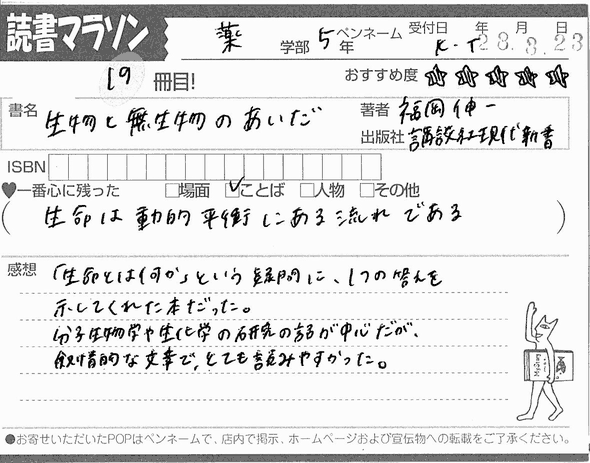 読書マラソン
薬 学部 5年 ペンネーム K.T 受付日 28年 3月 23日
19 冊目!
おすすめ度 ★★★★★
書名 生物と無生物のあいだ
著者 福岡伸一
出版社 講談社現代新書
ISBN
♥一番心に残った □場面 ☑ことば □人物 □その他
(生命は動的平衡にある流れである)
感想 「生命とは何か」という疑問に、1つの答えを
示してくれた本だった。
分子生物学や生化学の研究の話が中心だが、
叙情的な文章で、とても読みやすかった。
●お寄せいただいたPOPはペンネームで、店内で掲示、ホームページおよび宣伝物への転載をご了承ください。